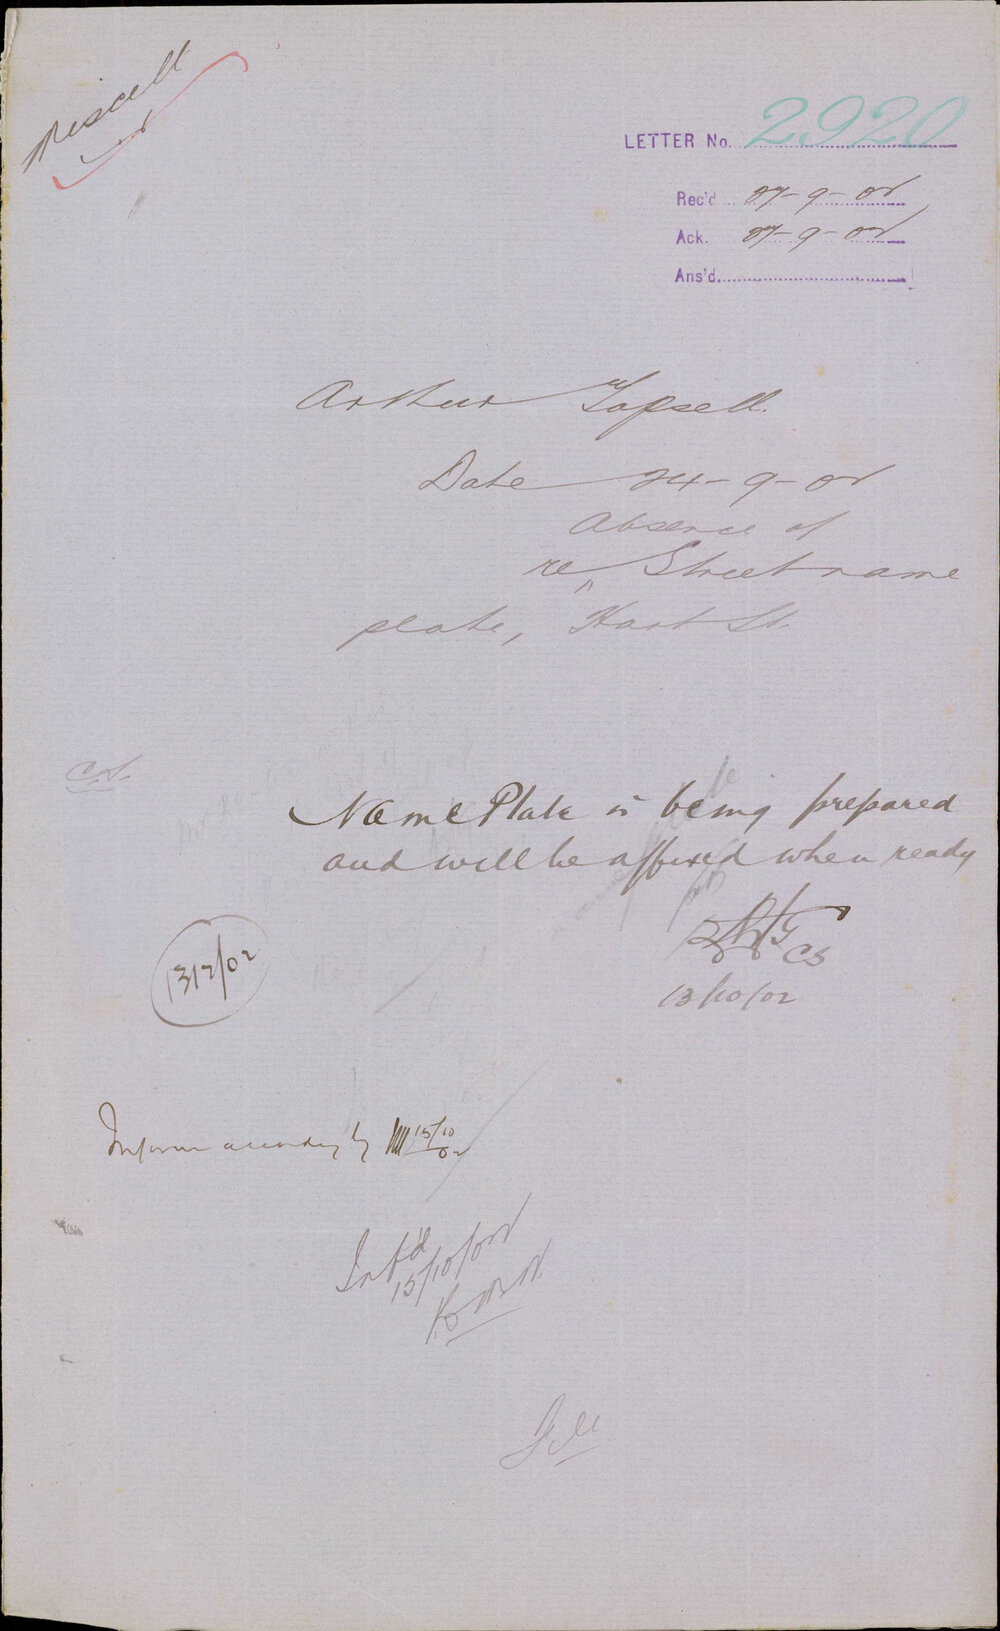 Miscell
LETTER No. 2920
Rec'd 27-9-02
Ack. 27-9-02
Ans'd.
Arthur Topsell.
Date 24-9-02
Absence of
re ^ Street name
plate, Hart St.
C.S.
Name Plate is being prepared
and will be affixed when ready
CS
13/10/02
Inform accordingly 15/10/02
Inf'd
15/10/02
File